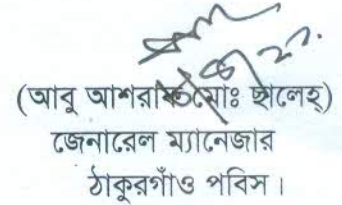 (আবু আশরাফ মোঃ ছালেহ্)
জেনারেল ম্যানেজার
ঠাকুরগাঁও পবিস।